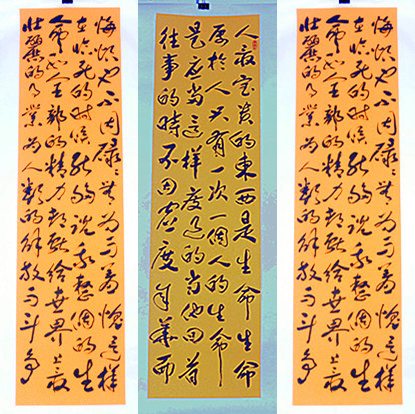 悔恨也不因碌碌无为而羞愧這样
在临死的时候能够说我整個的生
命和全部的精力都献给世界上最
壮麗的事業为人類的解放而斗争
人最宝貴的東西是生命生命
属於人只有一次一個人的生命
是应当這样度过的当他回首
往事的時不因虚度年華而
悔恨也不因碌碌无为而羞愧這样
在临死的时候能够说我整個的生
命和全部的精力都献给世界上最
壮麗的事業为人類的解放而斗争